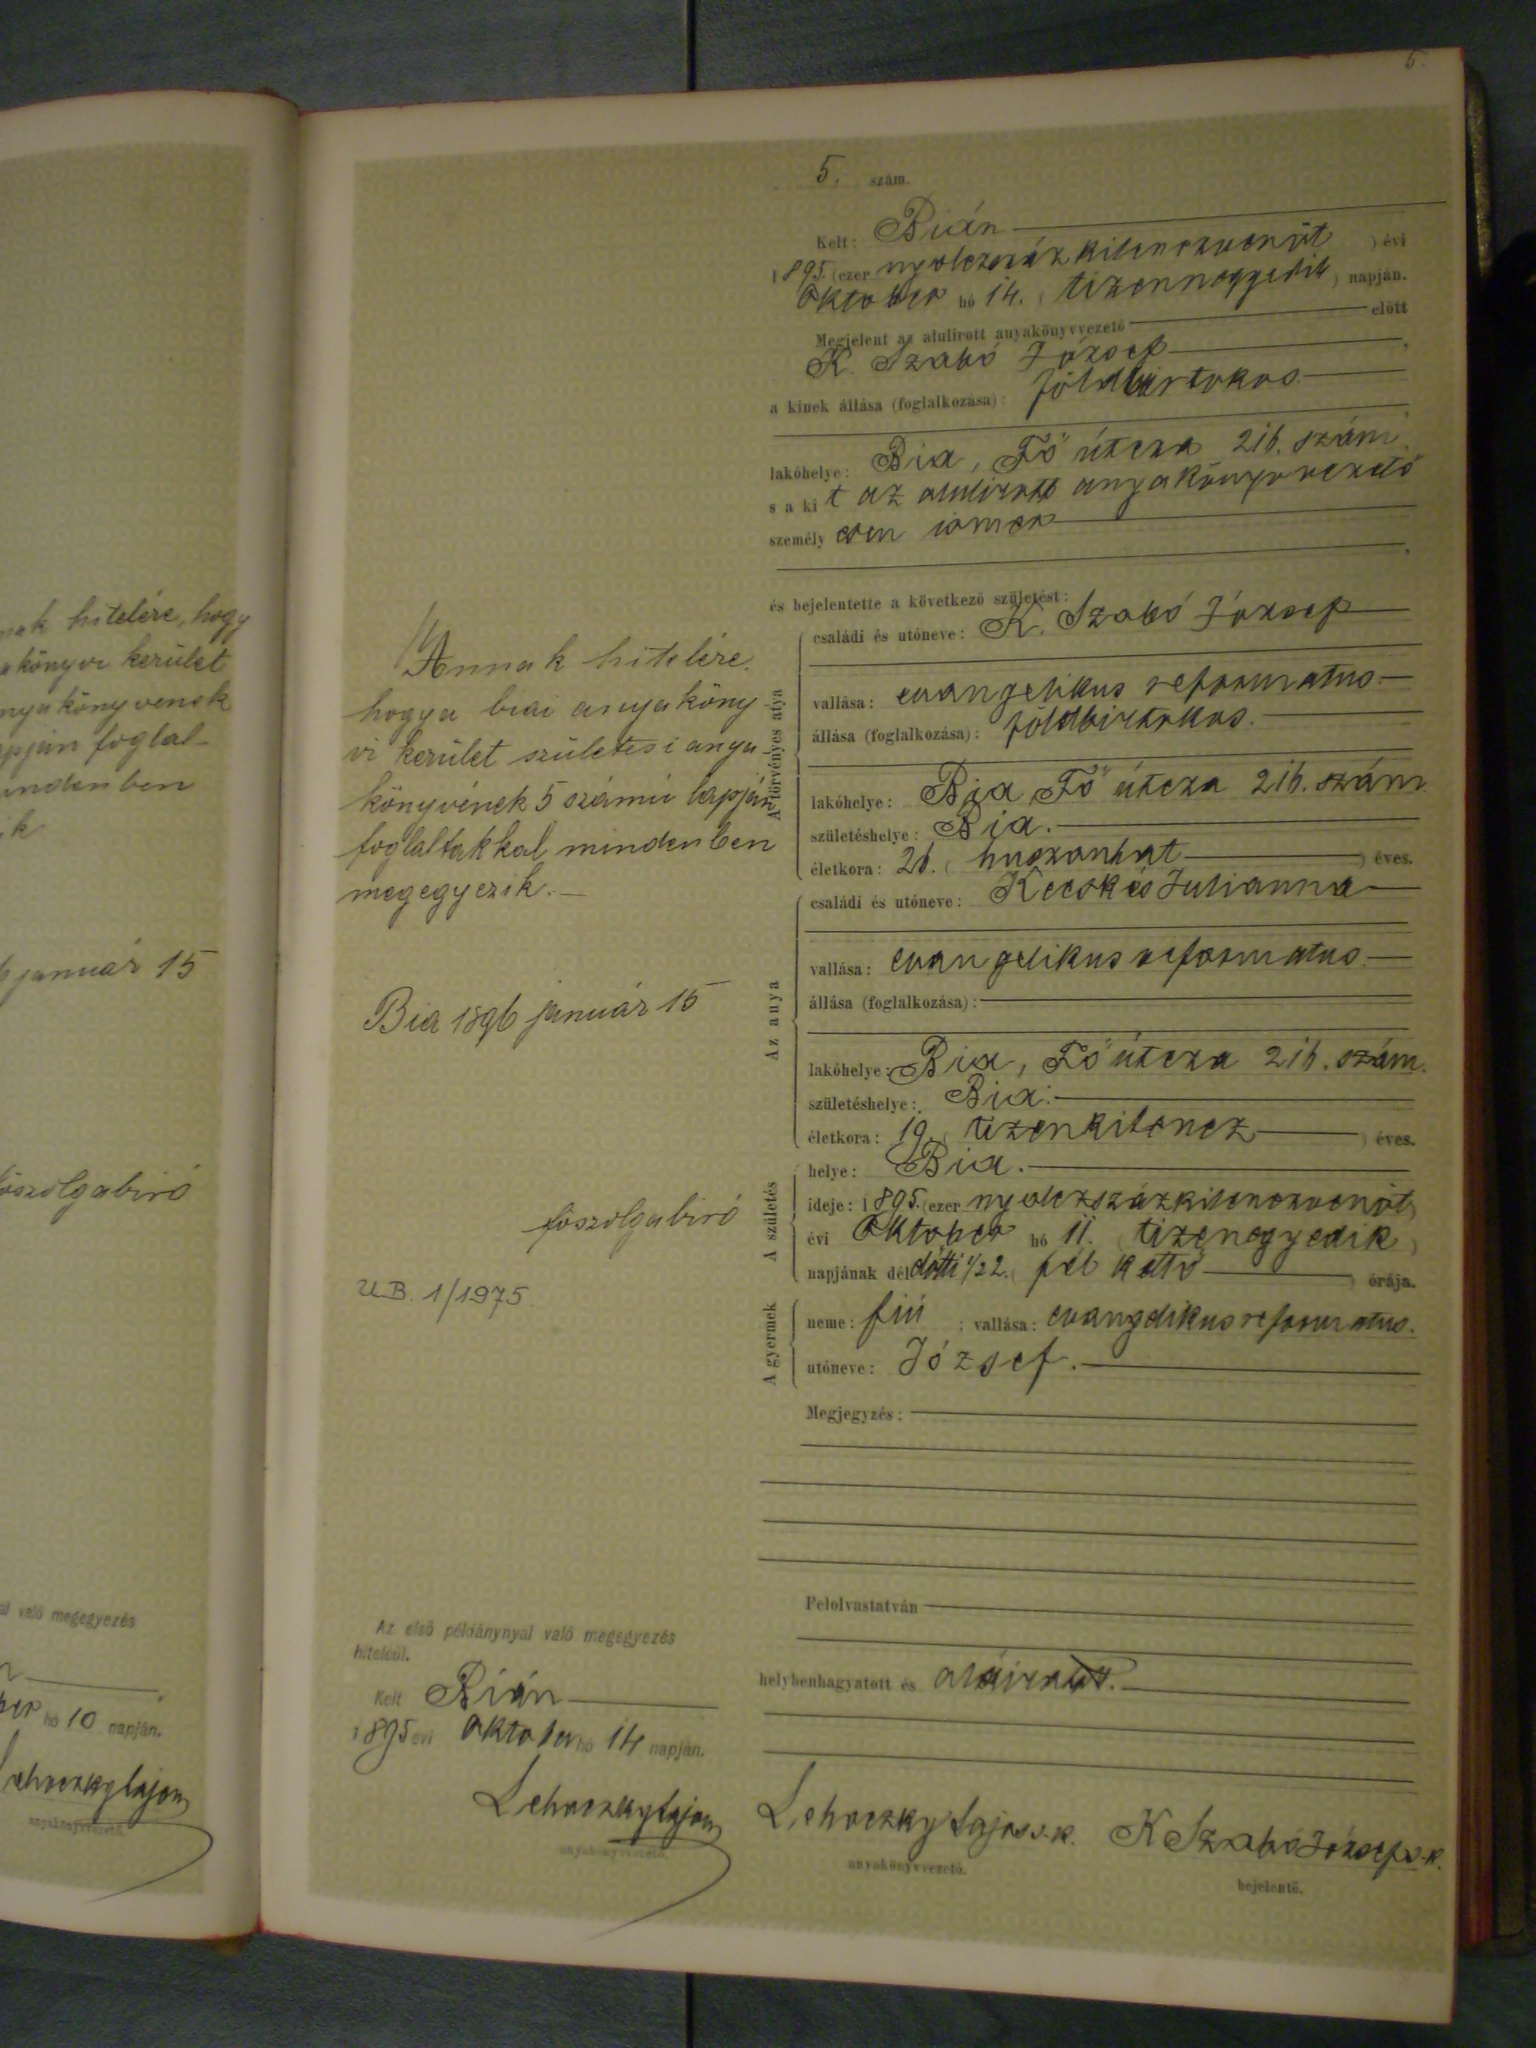 nak hitelére, hogy
akönyvi kerület
nyakönyvenek
pján foglal-
indenben
ik
január 15
főszolgabiró
al való megegyezés
hó 10 napján.
Lehoczky Lajos
anyakönyvvezető.
5.
5. szám.
Kelt: Bián
1895. (ezer nyolczszázkilenczvenöt ) évi
Oktober hó 14. (tizennegyedik) napján.
Megjelent az alulirott anyakönyvvezető előtt
K. Szabó József
a kinek állása (foglalkozása): földbirtokos.
lakóhelye: Bia, Fő útcza 216. szám.
s a kit az alulirott anyakönyvvezető
személyesen ismer
és bejelentette a következő születést:
A törvényes atya
családi és utóneve: K. Szabó József
vallása: evangelikus reformatus.
állása (foglalkozása): földbirtokos.
lakóhelye: Bia, Fő útcza 216. szám
születéshelye: Bia.
életkora: 26. (huszonhat ) éves.
Az anya
családi és utóneve: Kecskés Julianna
vallása: evangelikus reformatus.
állása (foglalkozása):
lakóhelye: Bia, Fő útcza 216. szám.
születéshelye: Bia.
életkora: 19. (tizenkilencz ) éves.
A születés
helye: Bia.
ideje: 1895. (ezer nyolczszázkilenczvenöt)
évi Oktober hó 11. (tizenegyedik)
napjának délőtti 1/2 2. (fél kettő ) órája.
A gyermek
neme: fiú ; vallása: evangelikus reformatus.
utóneve: József.
Megjegyzés:
Felolvastatván
helybenhagyatott és aláiratott.
Lehoczky Lajos s.k.
anyakönyvvezető.
K Szabó József s.k.
bejelentő.
Annak hitelére,
hogy a biai anyaköny-
vi kerület születési anya-
könyvének 5 számú lapján
foglaltakkal mindenben
megegyezik.
Bia 1896 január 15
főszolgabiró
U.B. 1/1975.
Az első példánynyal való megegyezés
hiteléül.
Kelt Bián
1895 évi oktober hó 14 napján.
Lehoczky Lajos
anyakönyvvezető.